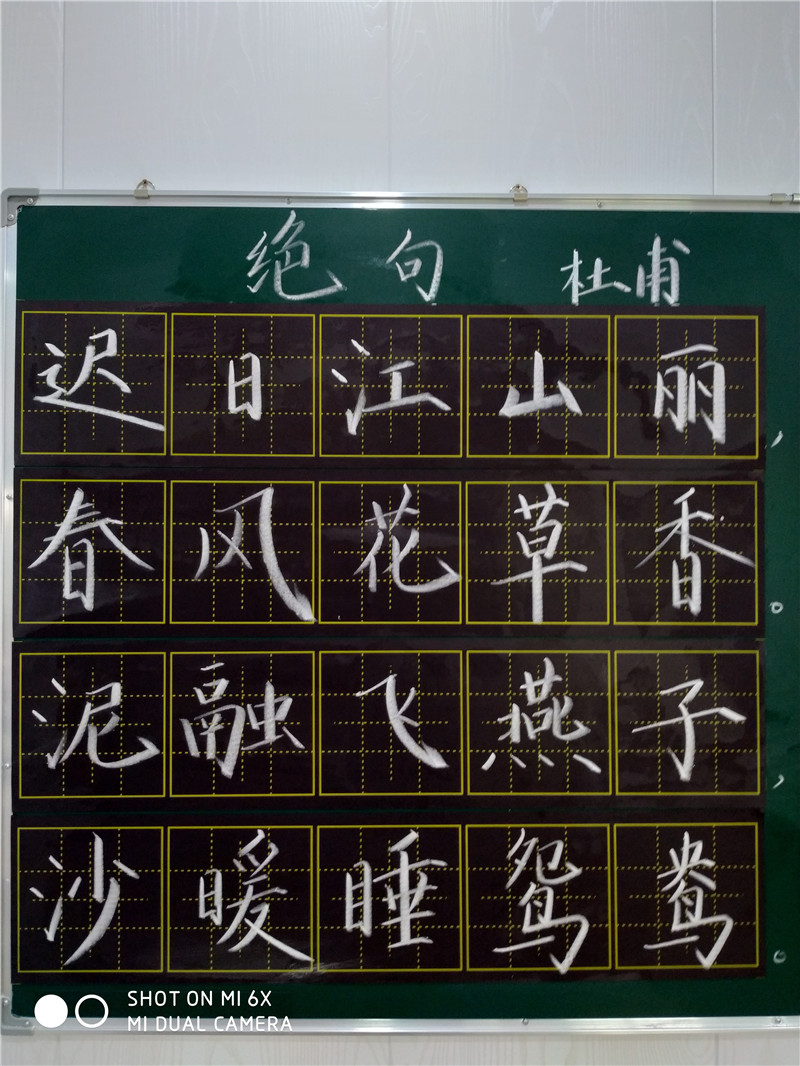 绝句 杜甫
迟日江山丽，
春风花草香。
泥融飞燕子，
沙暖睡鸳鸯。
SHOT ON MI 6X
MI DUAL CAMERA